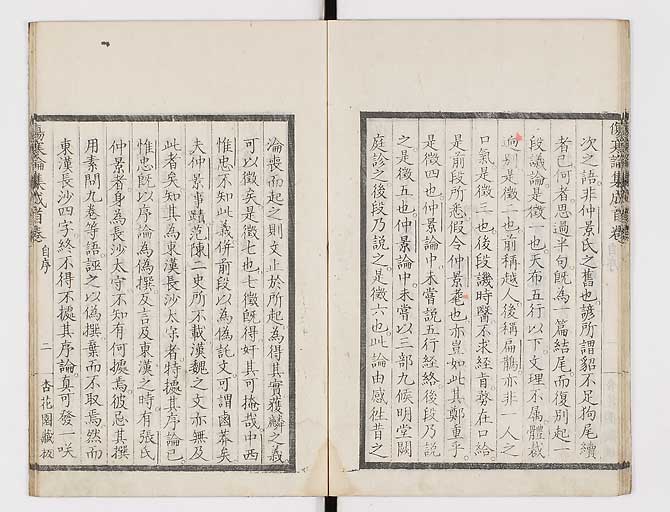 傷寒論集成首卷
次之語非仲景氏之舊也諺所謂貂不足狗尾續
者已何者思過半句既為一篇結尾而復別起一
段議論是徵一也天布五行以下文理不属體裁
逈別是徵二也前稱越人後稱扁鵲亦非一人之
口氣是徵三也後段譏時醫不求經旨務在口給
是前段所悉假令仲景耄也亦豈如此其鄭重乎
是徵四也仲景論中未嘗說五行經絡後段乃說
之是徵五也仲景論中未嘗以三部九候明堂闕
庭診之後段乃說之是徵六也此論由感往昔之
淪喪而起之則文止於所起為得其實獲麟之義
可以徵矣是徵七也七徵既得奸其可掩哉中西
惟忠不知此義併前段以為偽託文可謂鹵莽矣
夫仲景事蹟范陳二史所不載漢魏之文亦無及
此者矣知其為東漢長沙太守者特據其序論已
惟忠既以序論為偽撰又言及東漢之時有張氏
仲景者身為長沙太守不知有何據焉彼忌其撰
用素問九卷等語誣之以偽撰棄而不取焉然而
東漢長沙四字終不得不據其序論真可發一咲
傷寒論集成首卷 自序 二 杏花園藏板